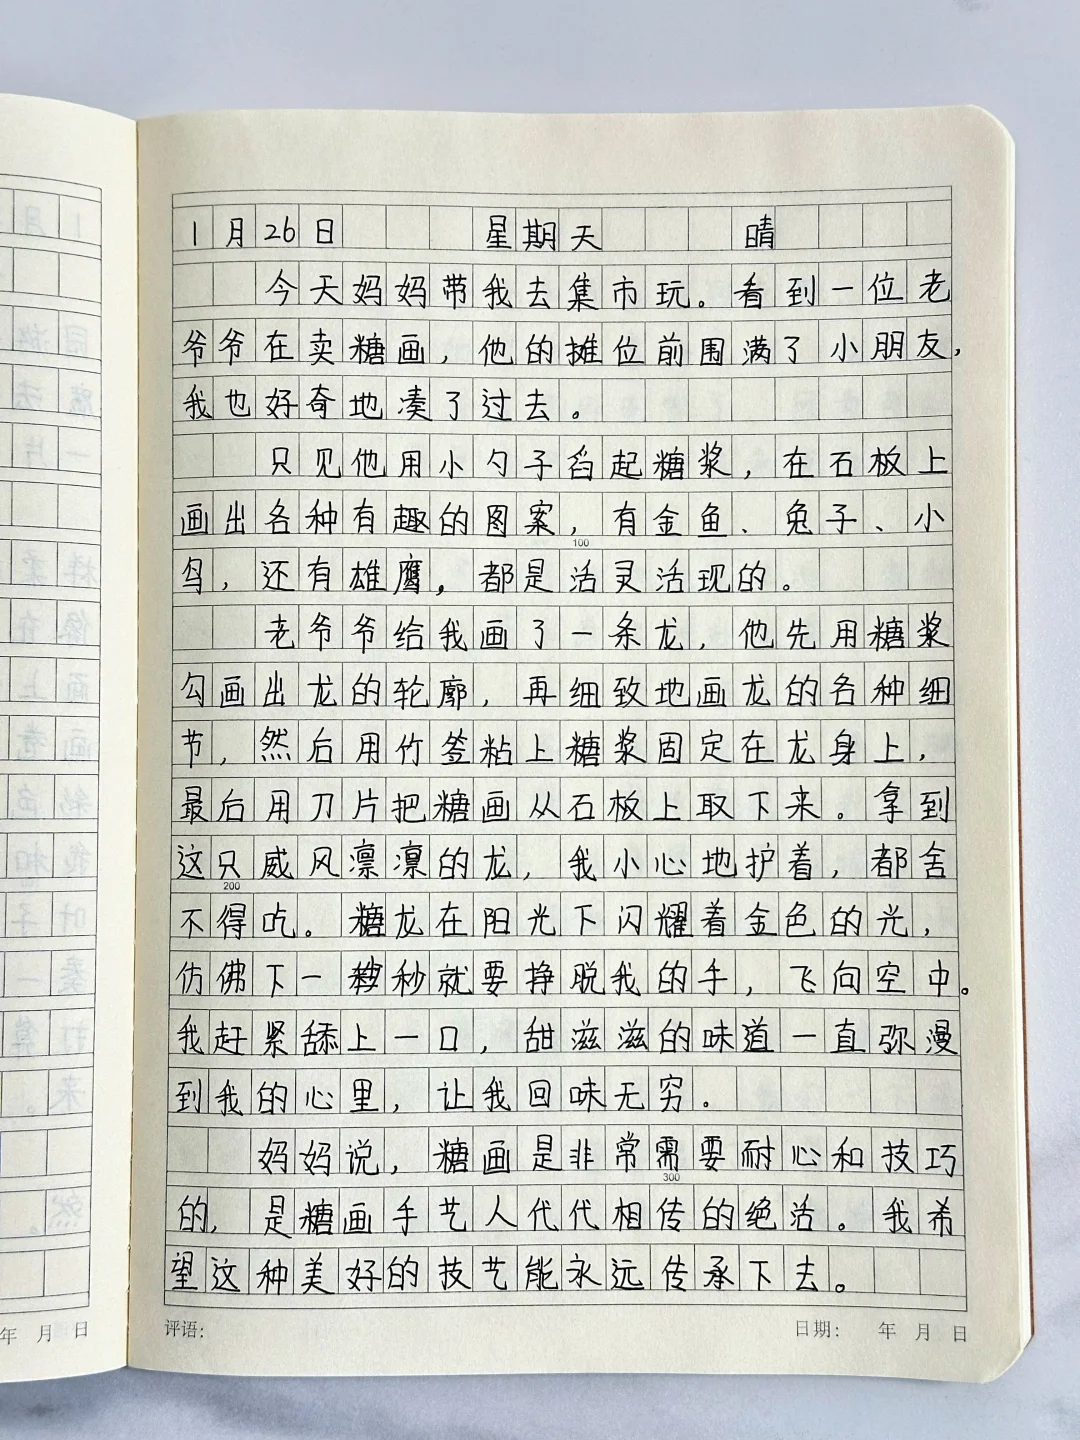 1月26日 星期天 晴
今天妈妈带我去集市玩。看到一位老
爷爷在卖糖画，他的摊位前围满了小朋友，
我也好奇地凑了过去。
只见他用小勺子舀起糖浆，在石板上
画出各种有趣的图案，有金鱼、兔子、小
100
鸟，还有雄鹰，都是活灵活现的。
老爷爷给我画了一条龙，他先用糖浆
勾画出龙的轮廓，再细致地画龙的各种细
节，然后用竹签粘上糖浆固定在龙身上，
最后用刀片把糖画从石板上取下来。拿到
这只威风凛凛的龙，我小心地护着，都舍
200
不得吃。糖龙在阳光下闪耀着金色的光，
仿佛下一秒秒就要挣脱我的手，飞向空中。
我赶紧舔上一口，甜滋滋的味道一直弥漫
到我的心里，让我回味无穷。
妈妈说，糖画是非常需要耐心和技巧
300
的，是糖画手艺人代代相传的绝活。我希
望这种美好的技艺能永远传承下去。
评语： 日期： 年 月 日
年 月 日